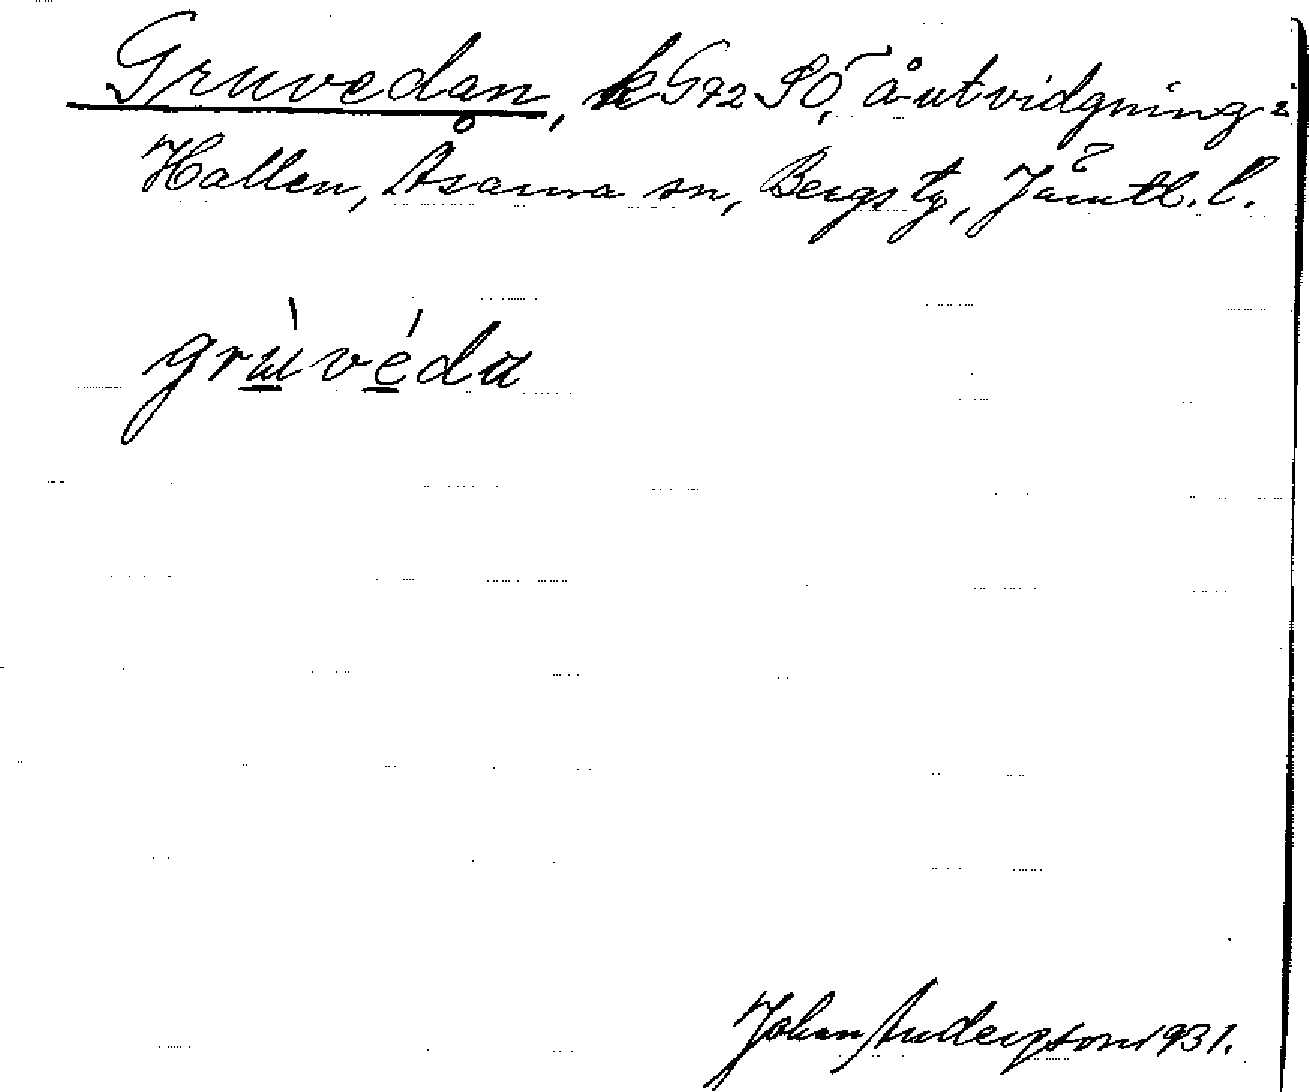 Gruvedan, kG72 SÖ, å-utvidgning i
Hallen, Åsarna sn, Bergs tg, Jämtl. l.
grùvéda
Johan Anderson 1931.